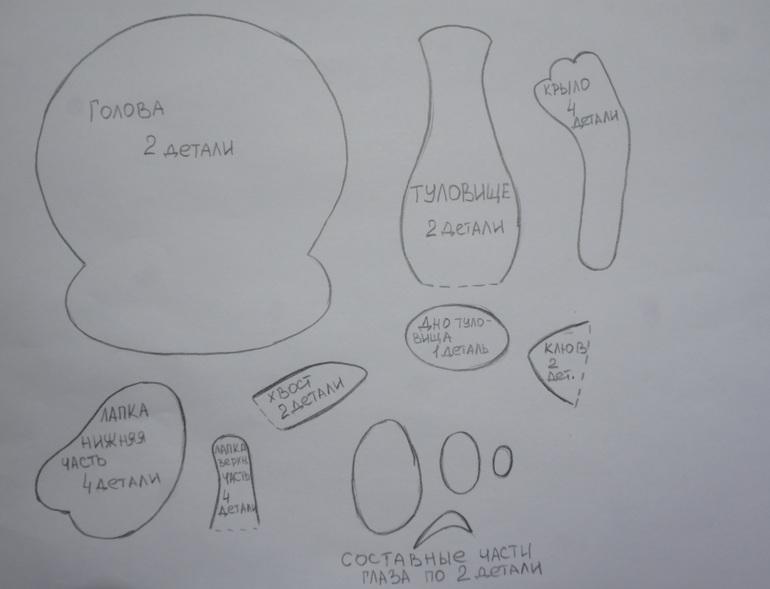 ГОЛОВА
2 ДЕТАЛИ
ТУЛОВИЩЕ
2 ДЕТАЛИ
КРЫЛО
4
ДЕТАЛИ
ДНО ТУЛО-
ВИЩА
1 ДЕТАЛЬ
КЛЮВ
2
ДЕТ.
ХВОСТ
2 ДЕТАЛИ
ЛАПКА
НИЖНЯЯ
ЧАСТЬ
4 ДЕТАЛИ
ЛАПКА
ВЕРХН.
ЧАСТЬ
4
ДЕТАЛИ
СОСТАВНЫЕ ЧАСТИ
ГЛАЗА ПО 2 ДЕТАЛИ